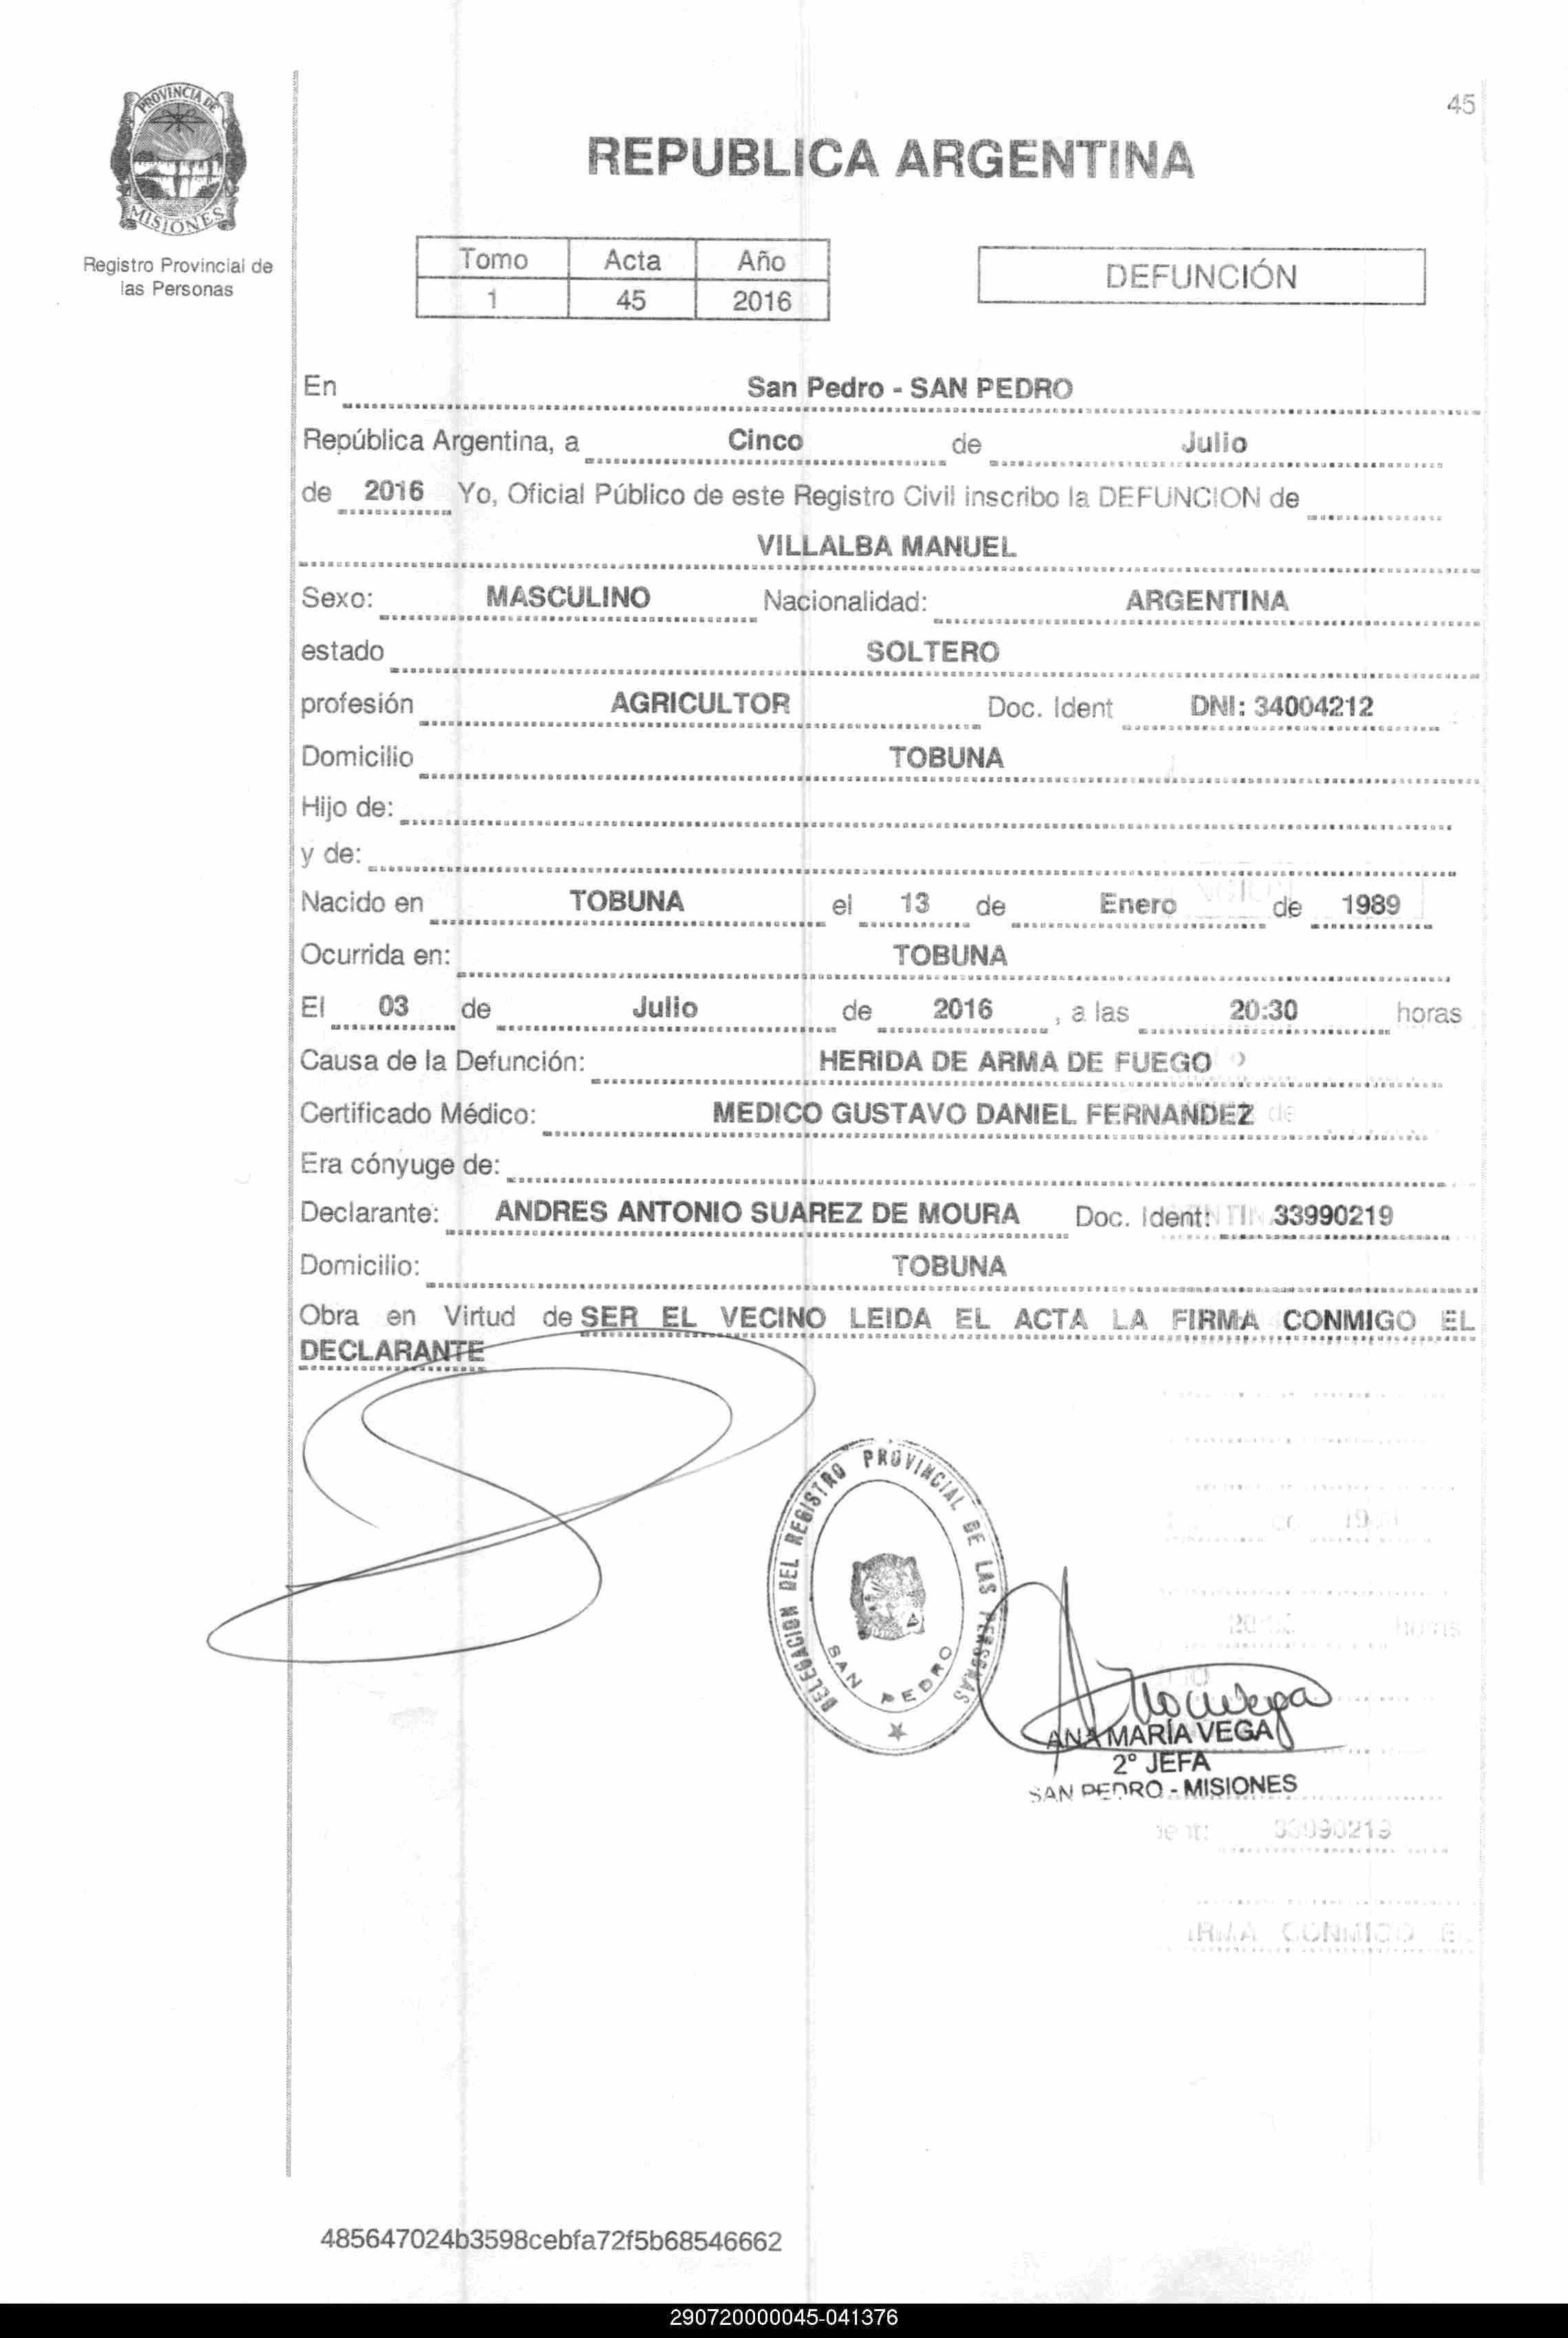 45
PROVINCIA DE
MISIONES
Registro Provincial de
las Personas
REPUBLICA ARGENTINA
Tomo Acta Año
1 45 2016
DEFUNCIÓN
En San Pedro - SAN PEDRO
República Argentina, a Cinco de Julio
de 2016 Yo, Oficial Público de este Registro Civil inscribo la DEFUNCION de
VILLALBA MANUEL
Sexo: MASCULINO Nacionalidad: ARGENTINA
estado SOLTERO
profesión AGRICULTOR Doc. Ident DNI: 34004212
Domicilio TOBUNA
Hijo de:
y de:
Nacido en TOBUNA el 13 de Enero de 1989
Ocurrida en: TOBUNA
El 03 de Julio de 2016 , a las 20:30 horas
Causa de la Defunción: HERIDA DE ARMA DE FUEGO
Certificado Médico: MEDICO GUSTAVO DANIEL FERNANDEZ
Era cónyuge de:
Declarante: ANDRES ANTONIO SUAREZ DE MOURA Doc. Ident: 33990219
Domicilio: TOBUNA
Obra en Virtud de SER EL VECINO LEIDA EL ACTA LA FIRMA CONMIGO EL
DECLARANTE
DELEGACION DEL REGISTRO PROVINCIAL DE LAS PERSONAS
SAN PEDRO
ANA MARÍA VEGA
2° JEFA
SAN PEDRO - MISIONES
horas
33990219
CONMIGO
485647024b3598cebfa72f5b68546662
290720000045-041376